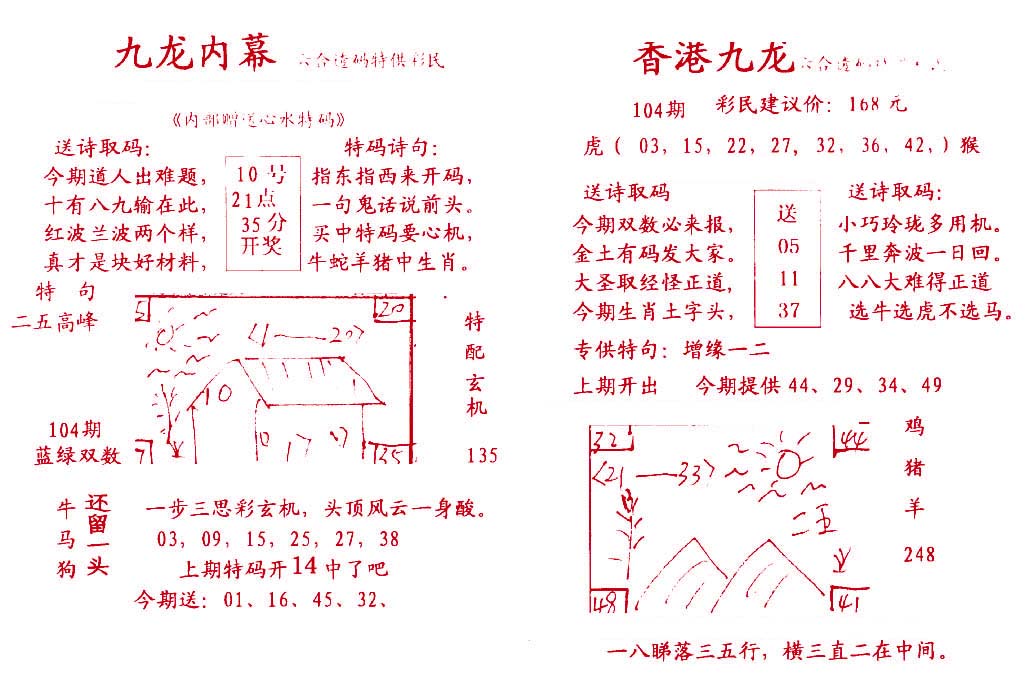 九龙内幕 六合造码特供彩民
《内部赠送心水特码》
送诗取码：
今期道人出难题，
十有八九输在此，
红波兰波两个样，
真才是块好材料，
10号
21点
35分
开奖
特码诗句：
指东指西来开码，
一句鬼话说前头。
买中特码要心机，
牛蛇羊猪中生肖。
特 句
二五高峰
104期
蓝绿双数
20
〈1——20〉
10
17
35
特配玄机
135
牛马狗
还留一头
一步三思彩玄机，头顶风云一身酸。
03，09，15，25，27，38
上期特码开14中了吧
今期送：01、16、45、32、
香港九龙 六合造码
104期 彩民建议价：168元
虎（ 03，15，22，27，32，36，42，）猴
送诗取码
今期双数必来报，
金土有码发大家。
大圣取经怪正道，
今期生肖土字头，
送
05
11
37
送诗取码：
小巧玲珑多用机。
千里奔波一日回。
八八大难得正道
选牛选虎不选马。
专供特句：增缘一二
上期开出 今期提供44、29、34、49
32
44
〈21——33〉
二五
48
41
鸡
猪
羊
248
一八睇落三五行，横三直二在中间。